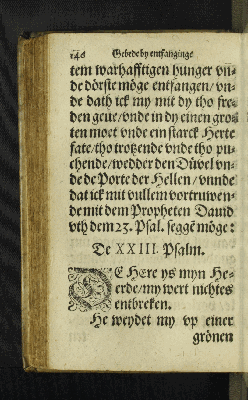 140 Gebede by entfanginge
tem warhafftigen hunger vn-
de dörste möge entfangen/ vn-
de dath ick my mit dy tho fre-
den geue/ vnde in dy einen gro-
ten moet vnde ein starck Herte
fate/ tho trotzende vnde tho pu-
chende/ wedder den Düvel vn-
de de Porte der Hellen/ vnnde
dat ick mit vullem vortruwen-
de mit dem Propheten Dauid
vth dem 23. Psal. seggē möge:
De XXIII. Psalm.
DE HEre ys myn He-
erde/ my wert nichtes
entbreken.
He weydet my vp einer
grönen